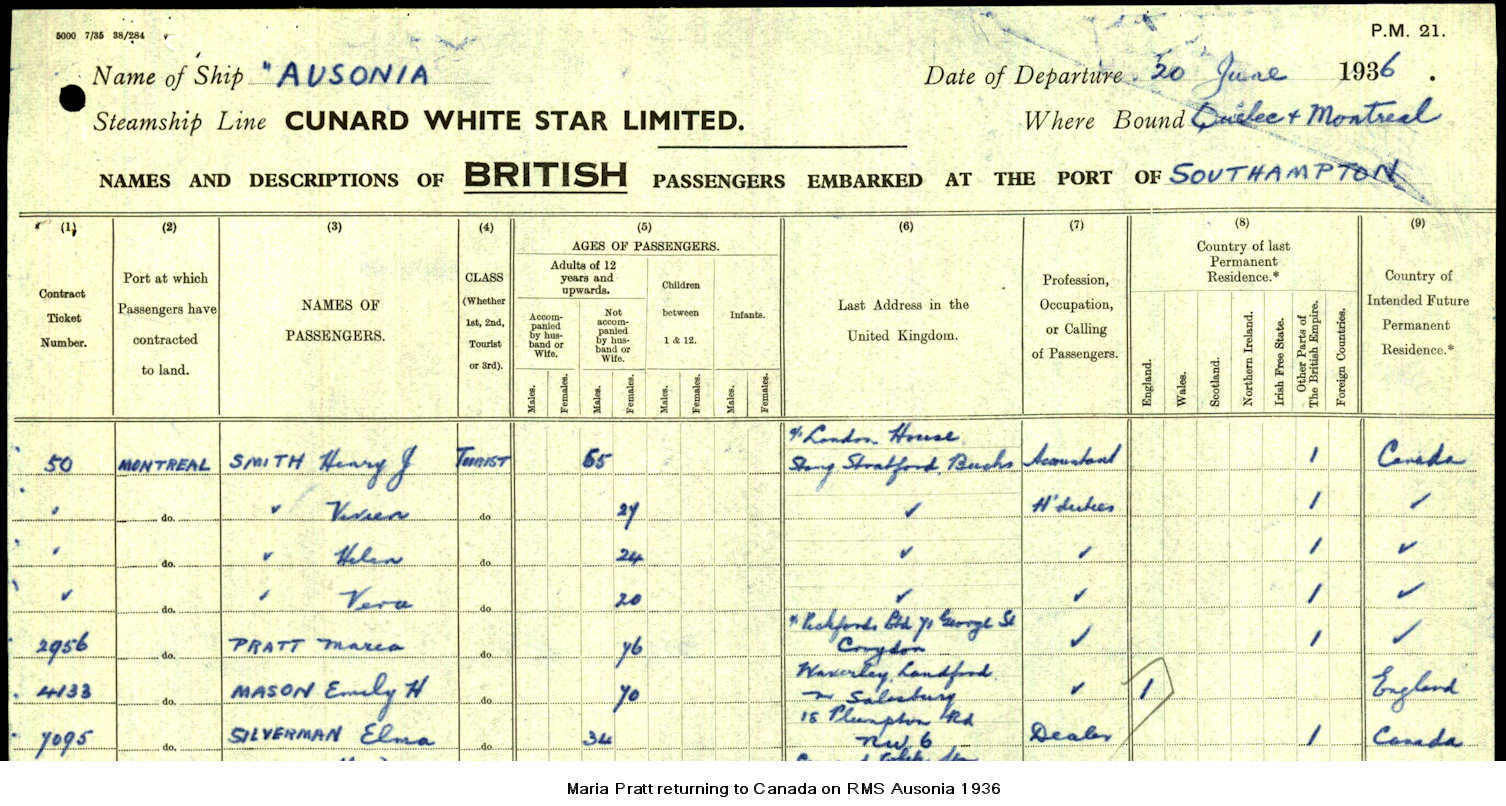 5000 7/35 38/284
P.M. 21.
Name of Ship "AUSONIA Date of Departure 20 June 1936.
Steamship Line CUNARD WHITE STAR LIMITED. Where Bound Quebec + Montreal
NAMES AND DESCRIPTIONS OF BRITISH PASSENGERS EMBARKED AT THE PORT OF SOUTHAMPTON
(1) (2) (3) (4) (5) (6) (7) (8) (9)
Contract Ticket Number.
Port at which Passengers have contracted to land.
NAMES OF PASSENGERS.
CLASS (Whether 1st, 2nd, Tourist or 3rd).
AGES OF PASSENGERS.
Adults of 12 years and upwards.
Accompanied by husband or Wife.
Not accompanied by husband or Wife.
Children between 1 & 12.
Infants.
Males. Females. Males. Females. Males. Females. Males. Females.
Last Address in the United Kingdom.
Profession, Occupation, or Calling of Passengers.
Country of last Permanent Residence.*
England. Wales. Scotland. Northern Ireland. Irish Free State. Other Parts of The British Empire. Foreign Countries.
Country of Intended Future Permanent Residence.*
c/o London House
50 MONTREAL SMITH Henry J TOURIST 55 Stony Stratford, Bucks Accountant 1 Canada
do. Vivien do 27 H'duties 1
do. Helen do 24 1
do. Vera do 20 1
Pickfords Ltd 71 George St
2956 do. PRATT Maria do 76 Croydon 1
Waverley, Landford
4133 do. MASON Emily H do 70 Nr Salisbury 1 England
15 Plumpton Rd
7095 do. SILVERMAN Elma do 34 NW 6 Dealer 1 Canada
Maria Pratt returning to Canada on RMS Ausonia 1936